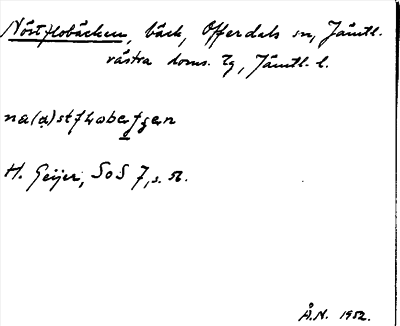 Nöstflobäcken, bäck, Offerdals sn, Jämtl.
västra doms. tg, Jämtl. l.
na(a)stflobefzen
H. Geijer, SoS 7, s. 52.
Å.N. 1952.